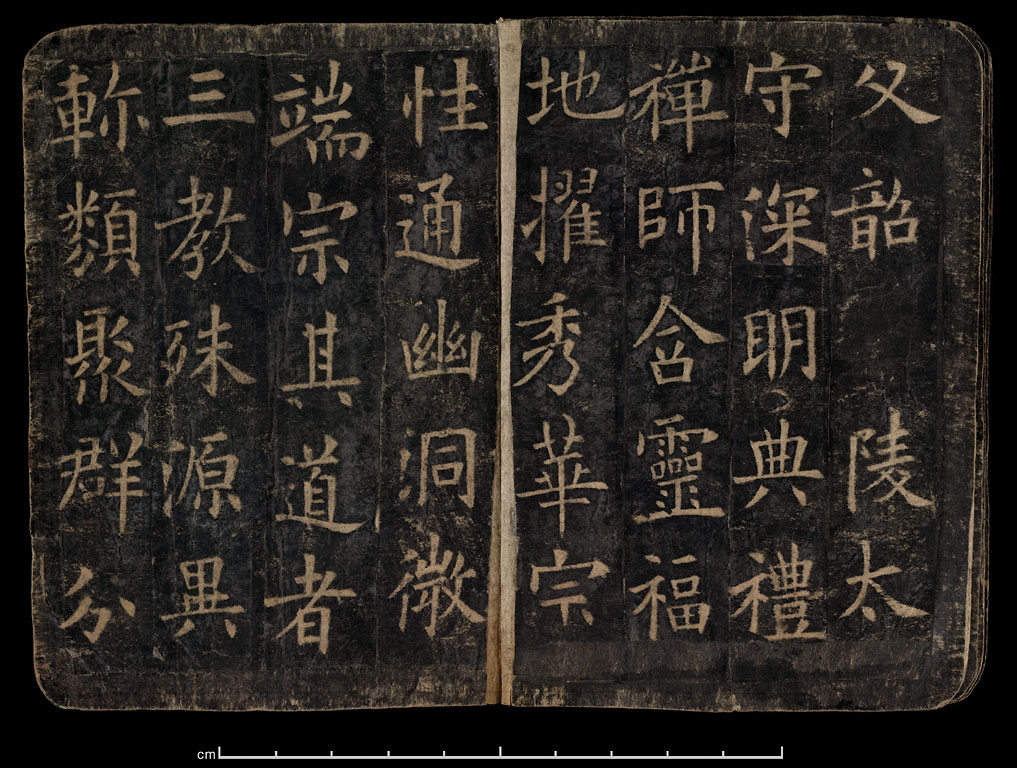 父韶 陵太
守深明典禮
禪師含靈福
地擢秀華宗
性通幽洞微
端宗其道者
三教殊源異
軫類聚群分
cm